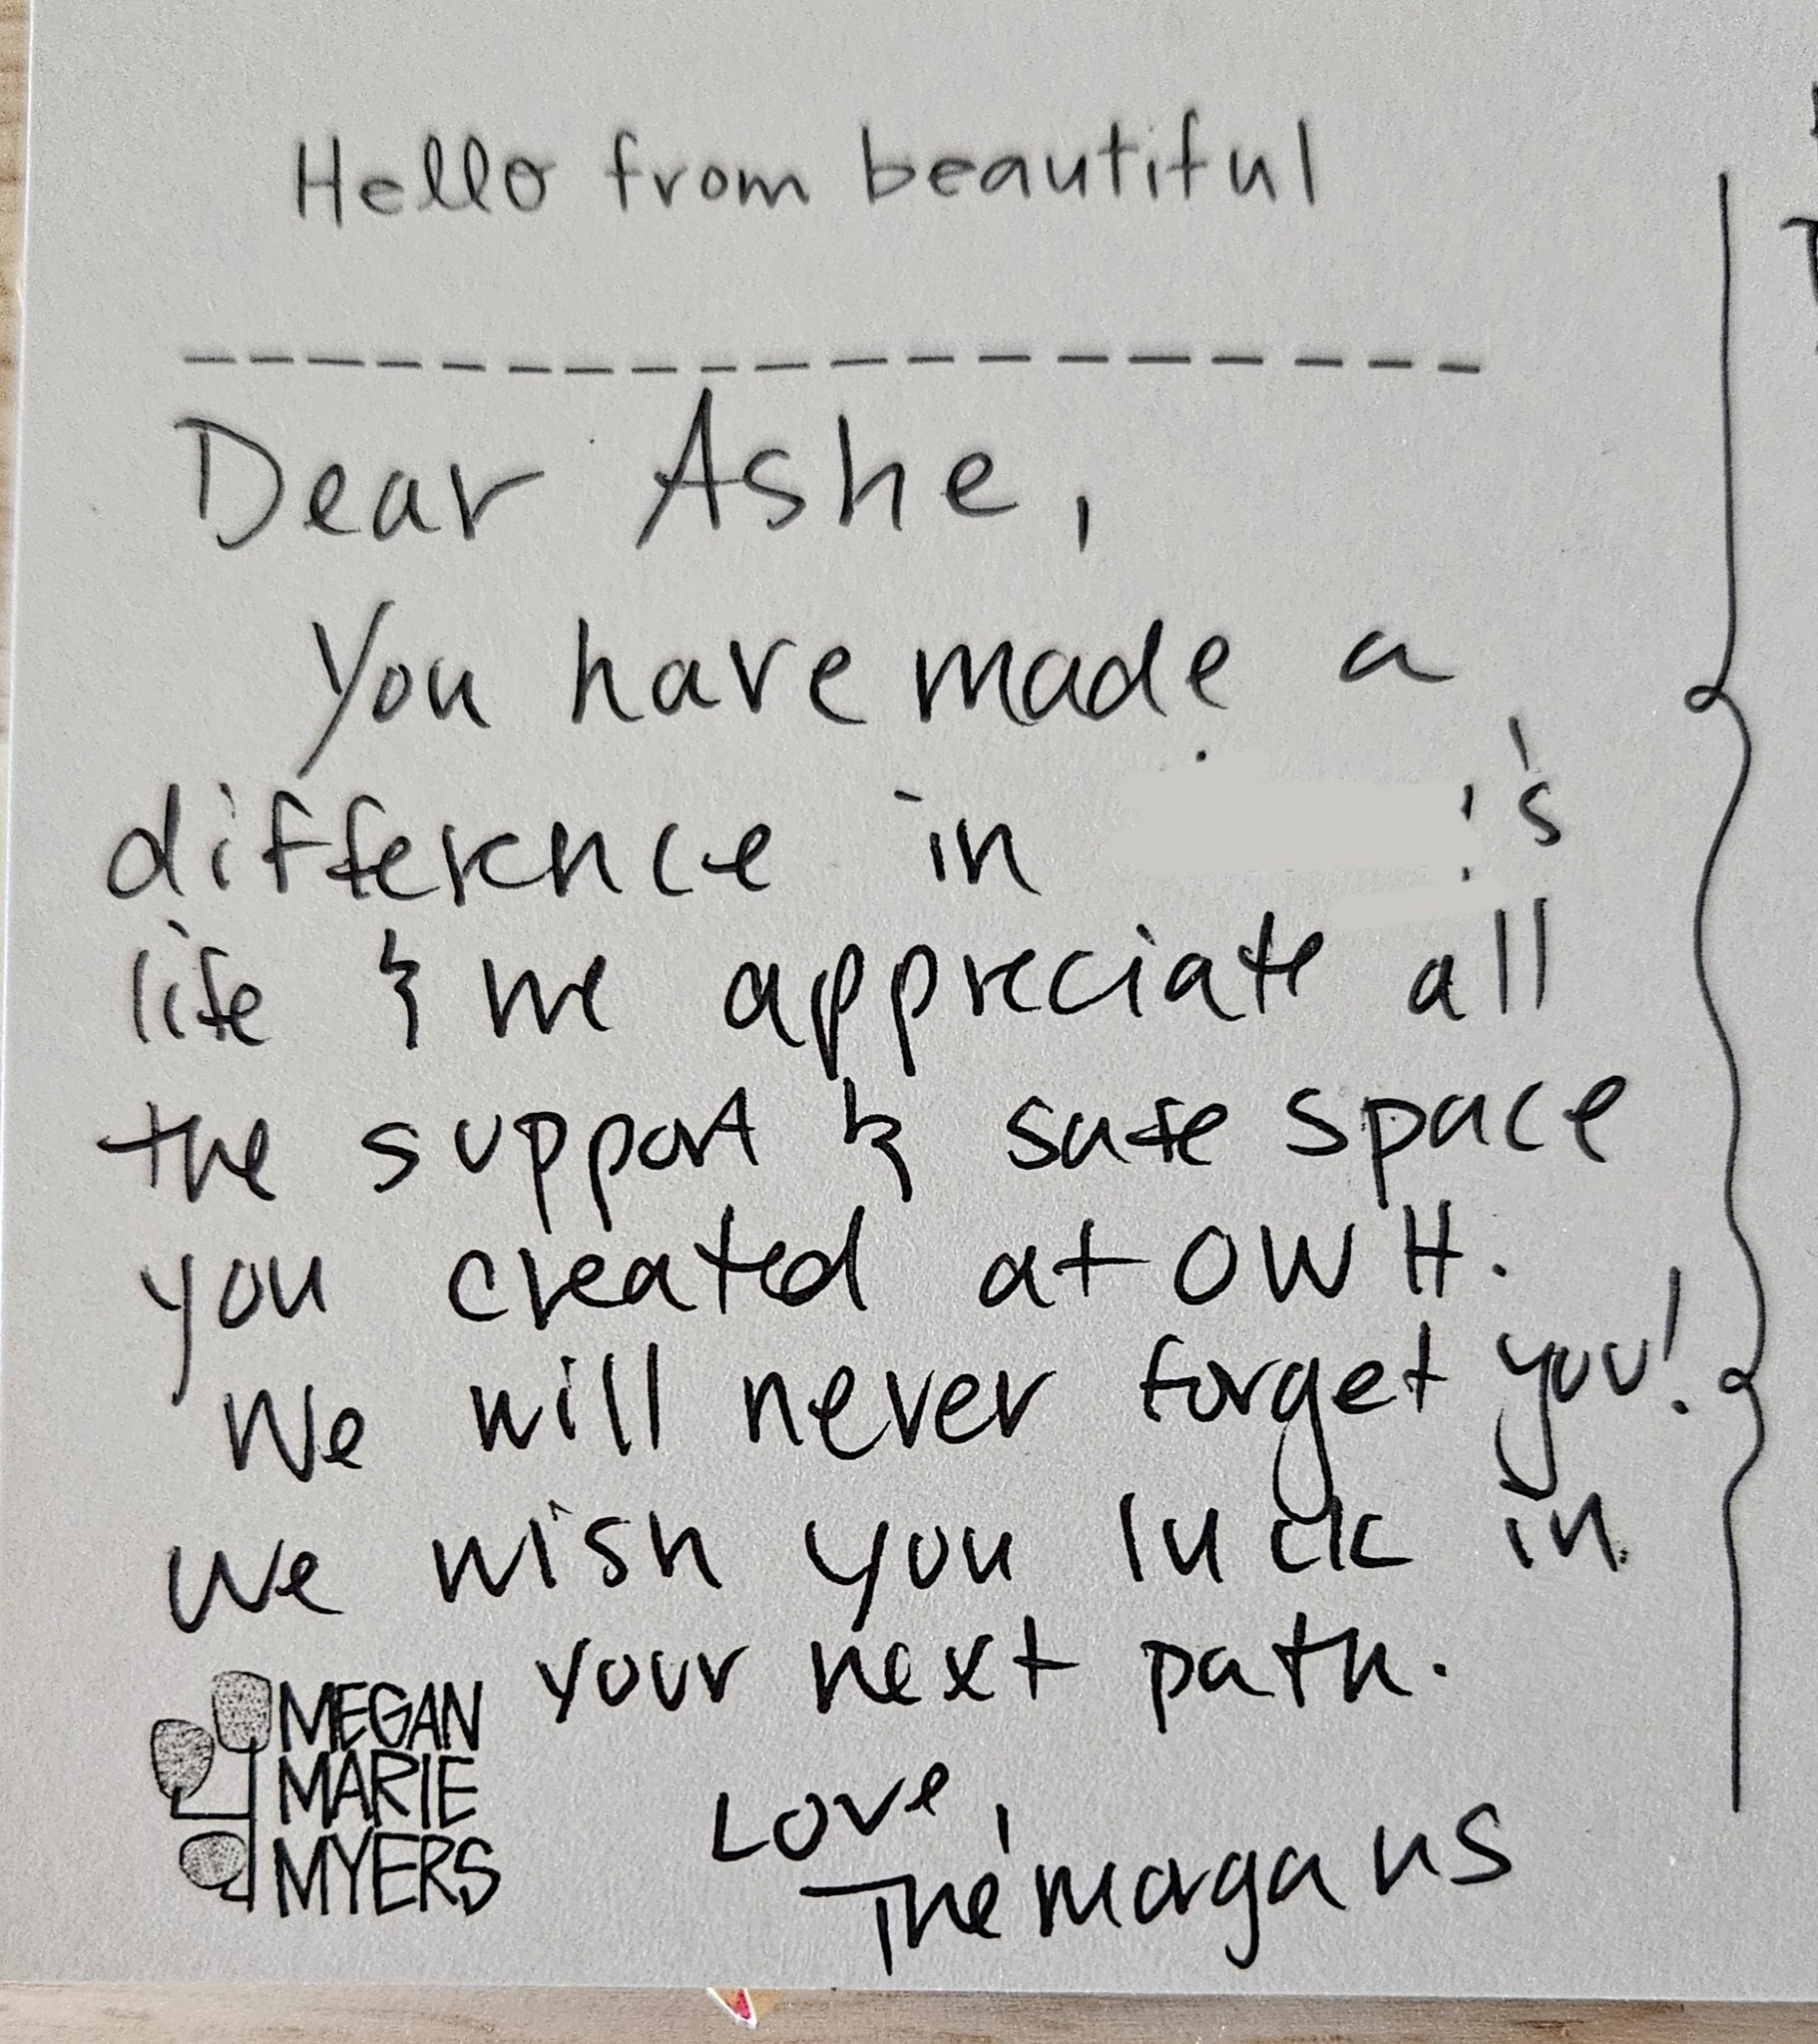 Hello from beautiful
Dear Ashe,
You have made a
difference in 's
life & we appreciate all
the support & safe space
you created at OWH.
We will never forget you!
We wish you luck in
your next path.
Love,
The Morgans
MEGAN
MARIE
MYERS